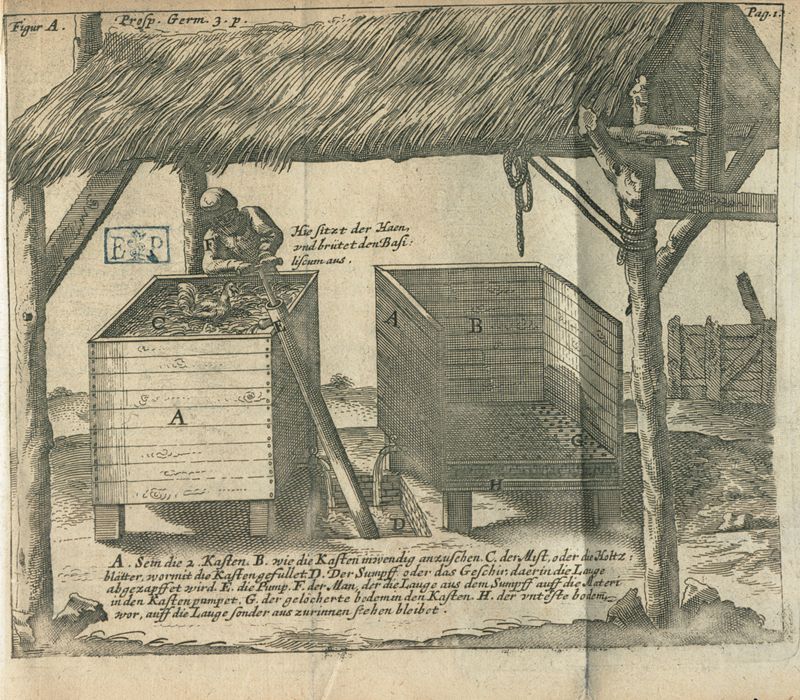 Figur A.
Prosp. Germ. 3. p.
Pag. 1.
F
Hie sitzt der Haen,
vnd brütet den Basi:
liscum aus.
E P
C
E
A
A
B
G
H
D
A. Sein die 2. Kasten. B. wie die Kasten inwendig anzusehen. C. der Mist, oder die Holtz:
blätter, wormit die Kasten gefüllet D. Der Sumpff oder das Geschir, daerin die Lauge
abgezapffet wird. E. die Pump. F. der Man, der die Lauge aus dem Sumpff auff die Materi
in den Kasten pumpet. G. der gelöcherte bodem in den Kasten. H. der vnteste bodem,
wor, auff die Lauge sonder aus zurinnen stehen bleibet.